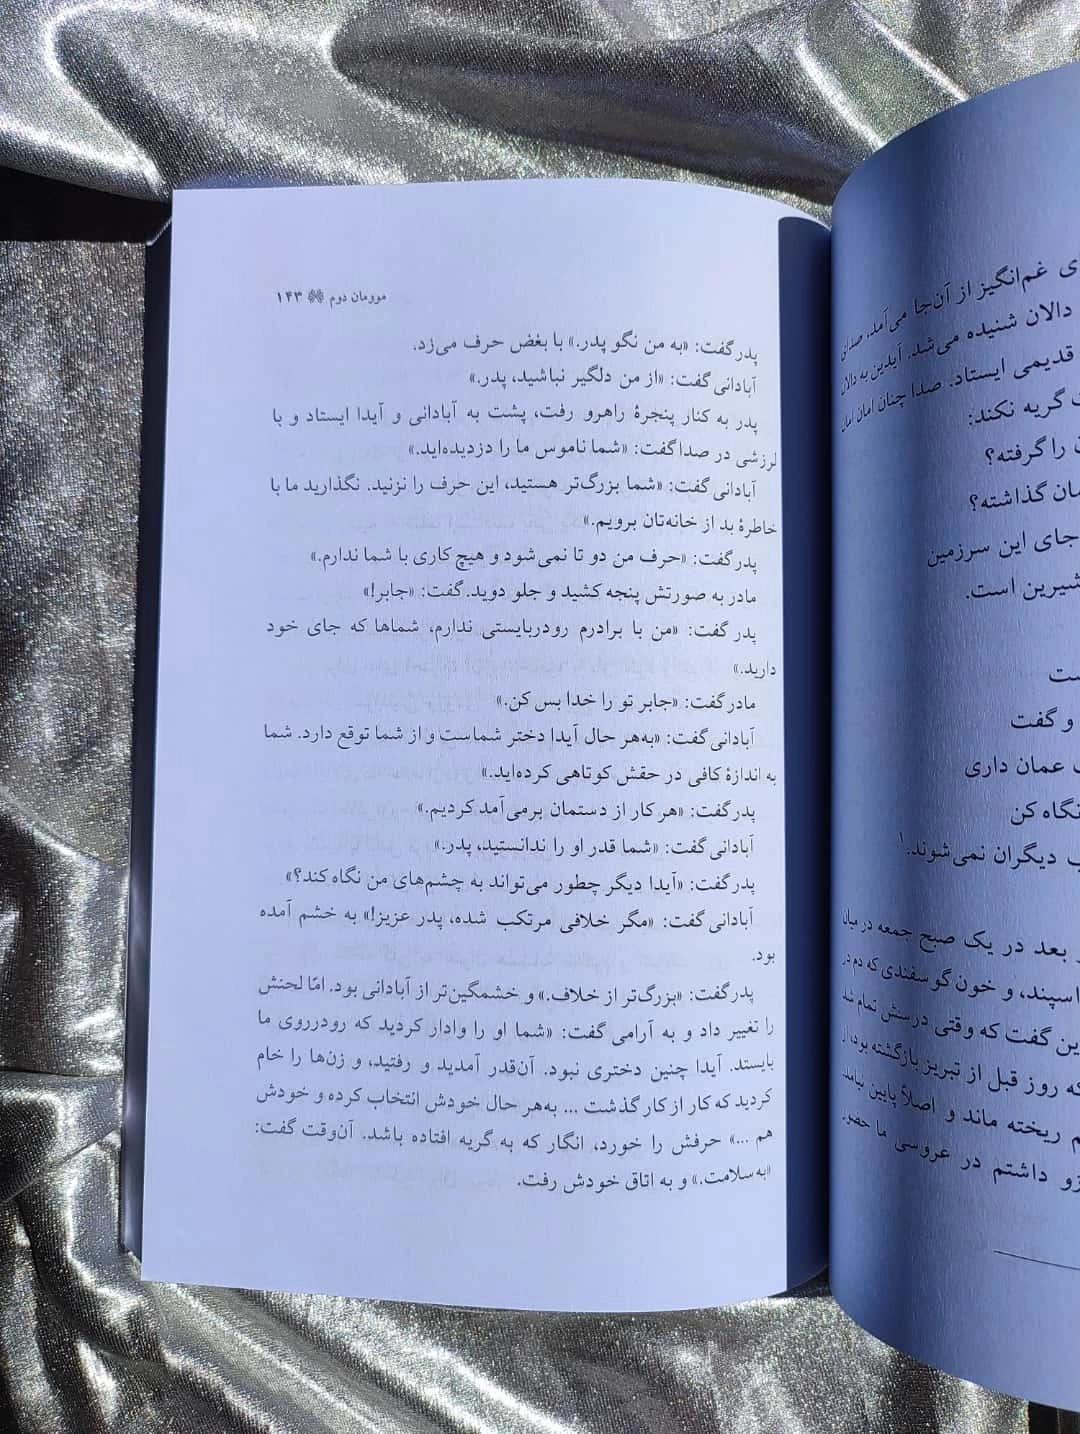 موومان دوم ۱۴۳
پدر گفت: «به من نگو پدر.» با بغض حرف می‌زد.
آبادانی گفت: «از من دلگیر نباشید، پدر.»
پدر به کنار پنجرهٔ راهرو رفت، پشت به آبادانی و آیدا ایستاد و با
لرزشی در صدا گفت: «شما ناموس ما را دزدیده‌اید.»
آبادانی گفت: «شما بزرگ‌تر هستید، این حرف را نزنید. نگذارید ما با
خاطرهٔ بد از خانه‌تان برویم.»
پدر گفت: «حرف من دو تا نمی‌شود و هیچ کاری با شما ندارم.»
مادر به صورتش پنجه کشید و جلو دوید. گفت: «جابر!»
پدر گفت: «من با برادرم رودربایستی ندارم، شماها که جای خود
دارید.»
مادر گفت: «جابر تو را خدا بس کن.»
آبادانی گفت: «به‌هر حال آیدا دختر شماست و از شما توقع دارد. شما
به اندازهٔ کافی در حقش کوتاهی کرده‌اید.»
پدر گفت: «هر کار از دستمان برمی‌آمد کردیم.»
آبادانی گفت: «شما قدر او را ندانستید، پدر.»
پدر گفت: «آیدا دیگر چطور می‌تواند به چشم‌های من نگاه کند؟»
آبادانی گفت: «مگر خلافی مرتکب شده، پدر عزیز!» به خشم آمده
بود.
پدر گفت: «بزرگ‌تر از خلاف.» و خشمگین‌تر از آبادانی بود. امّا لحنش
را تغییر داد و به آرامی گفت: «شما او را وادار کردید که رودرروی ما
بایستد. آیدا چنین دختری نبود. آن‌قدر آمدید و رفتید، و زن‌ها را خام
کردید که کار از کار گذشت ... به‌هر حال خودش انتخاب کرده و خودش
هم ...» حرفش را خورد، انگار که به گریه افتاده باشد. آن‌وقت گفت:
«به سلامت.» و به اتاق خودش رفت.
ی غم‌انگیز از آن‌جا می‌آمد، صدای
دالان شنیده می‌شد. آیدین به دالان
قدیمی ایستاد. صدا چنان امان امان
گریه نکند:
را گرفته؟
مان گذاشته؟
جای این سرزمین
شیرین است.
ست
و گفت
عمان داری
نگاه کن
دیگران نمی‌شوند.۱
بعد در یک صبح جمعه در میان
اسپند، و خون گوسفندی که دم در
ین گفت که وقتی درسش تمام شد
که روز قبل از تبریز بازگشته بود، از
م ریخته ماند و اصلاً پایین نیامد.
زو داشتم در عروسی ما حضور